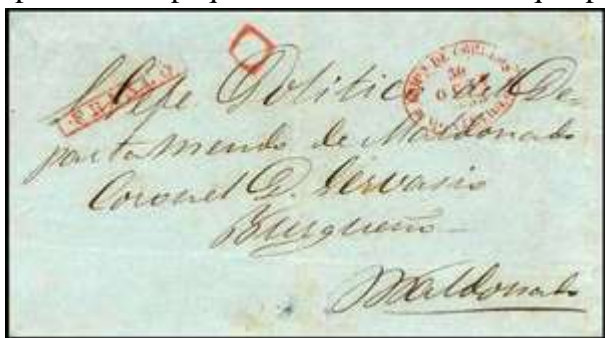 FRANCO
30
Al Gefe Politico del De-
partamento de Maldonado
Coronel D. Gervasio
Burgueño
Maldonado